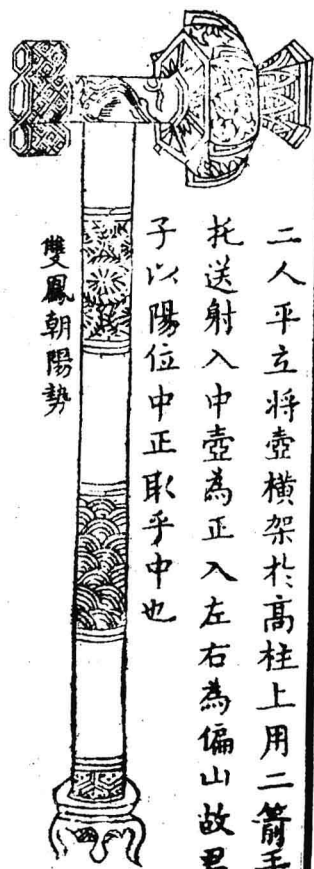 二人平立将壺橫架於高柱上用二箭手
托送射入中壺為正入左右為偏山故君
子以陽位中正取乎中也
雙鳳朝陽勢